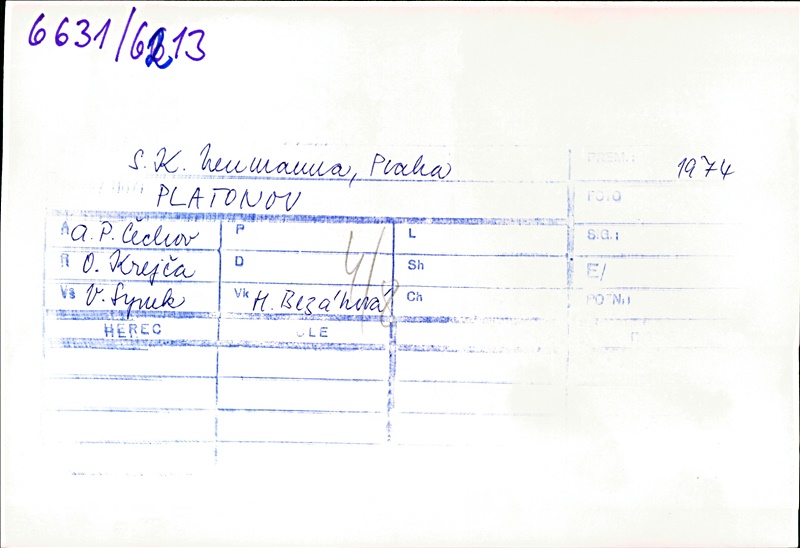 6631/6213
S. K. Neumanna, Praha
PREM.: 1974
PLATONOV
FOTO
A A. P. Čechov P L SIG.:
R O. Krejča D Sh E/
Vs V. Synek Vk H. Bezáková Ch POZN.:
4/8
HEREC